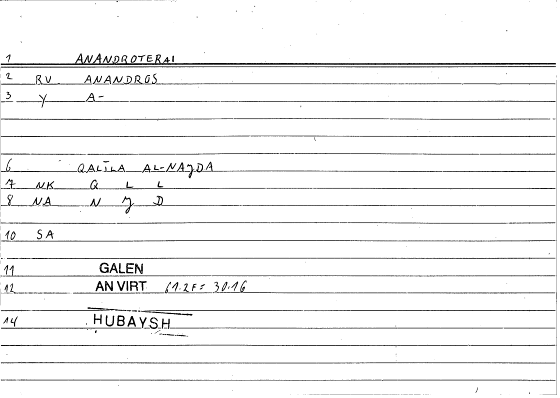 1 ANANDROTERAI
2 RU ANANDROS
3 Y A-
6 QALĪLA AL-NAJDA
7 NK Q L L
8 NA N J D
10 SA
11 GALEN
12 AN VIRT 61.2F= 30.16
14 HUBAYSH